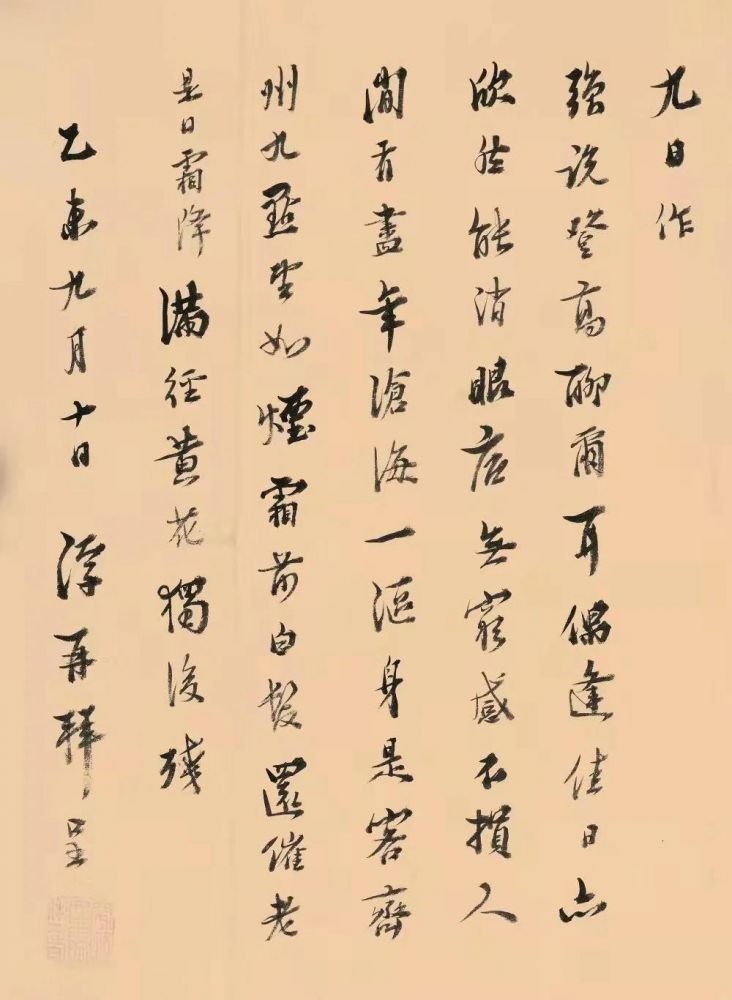 九日作
強說登高聊爾耳偶逢佳日亦
欣然能消眼底無窮感不損人
間有盡年滄海一漚身是客齊
州九點望如煙霜前白髮還催老
是日霜降滿徑黃花獨後殘
乙未九月十日 浮再拜呈